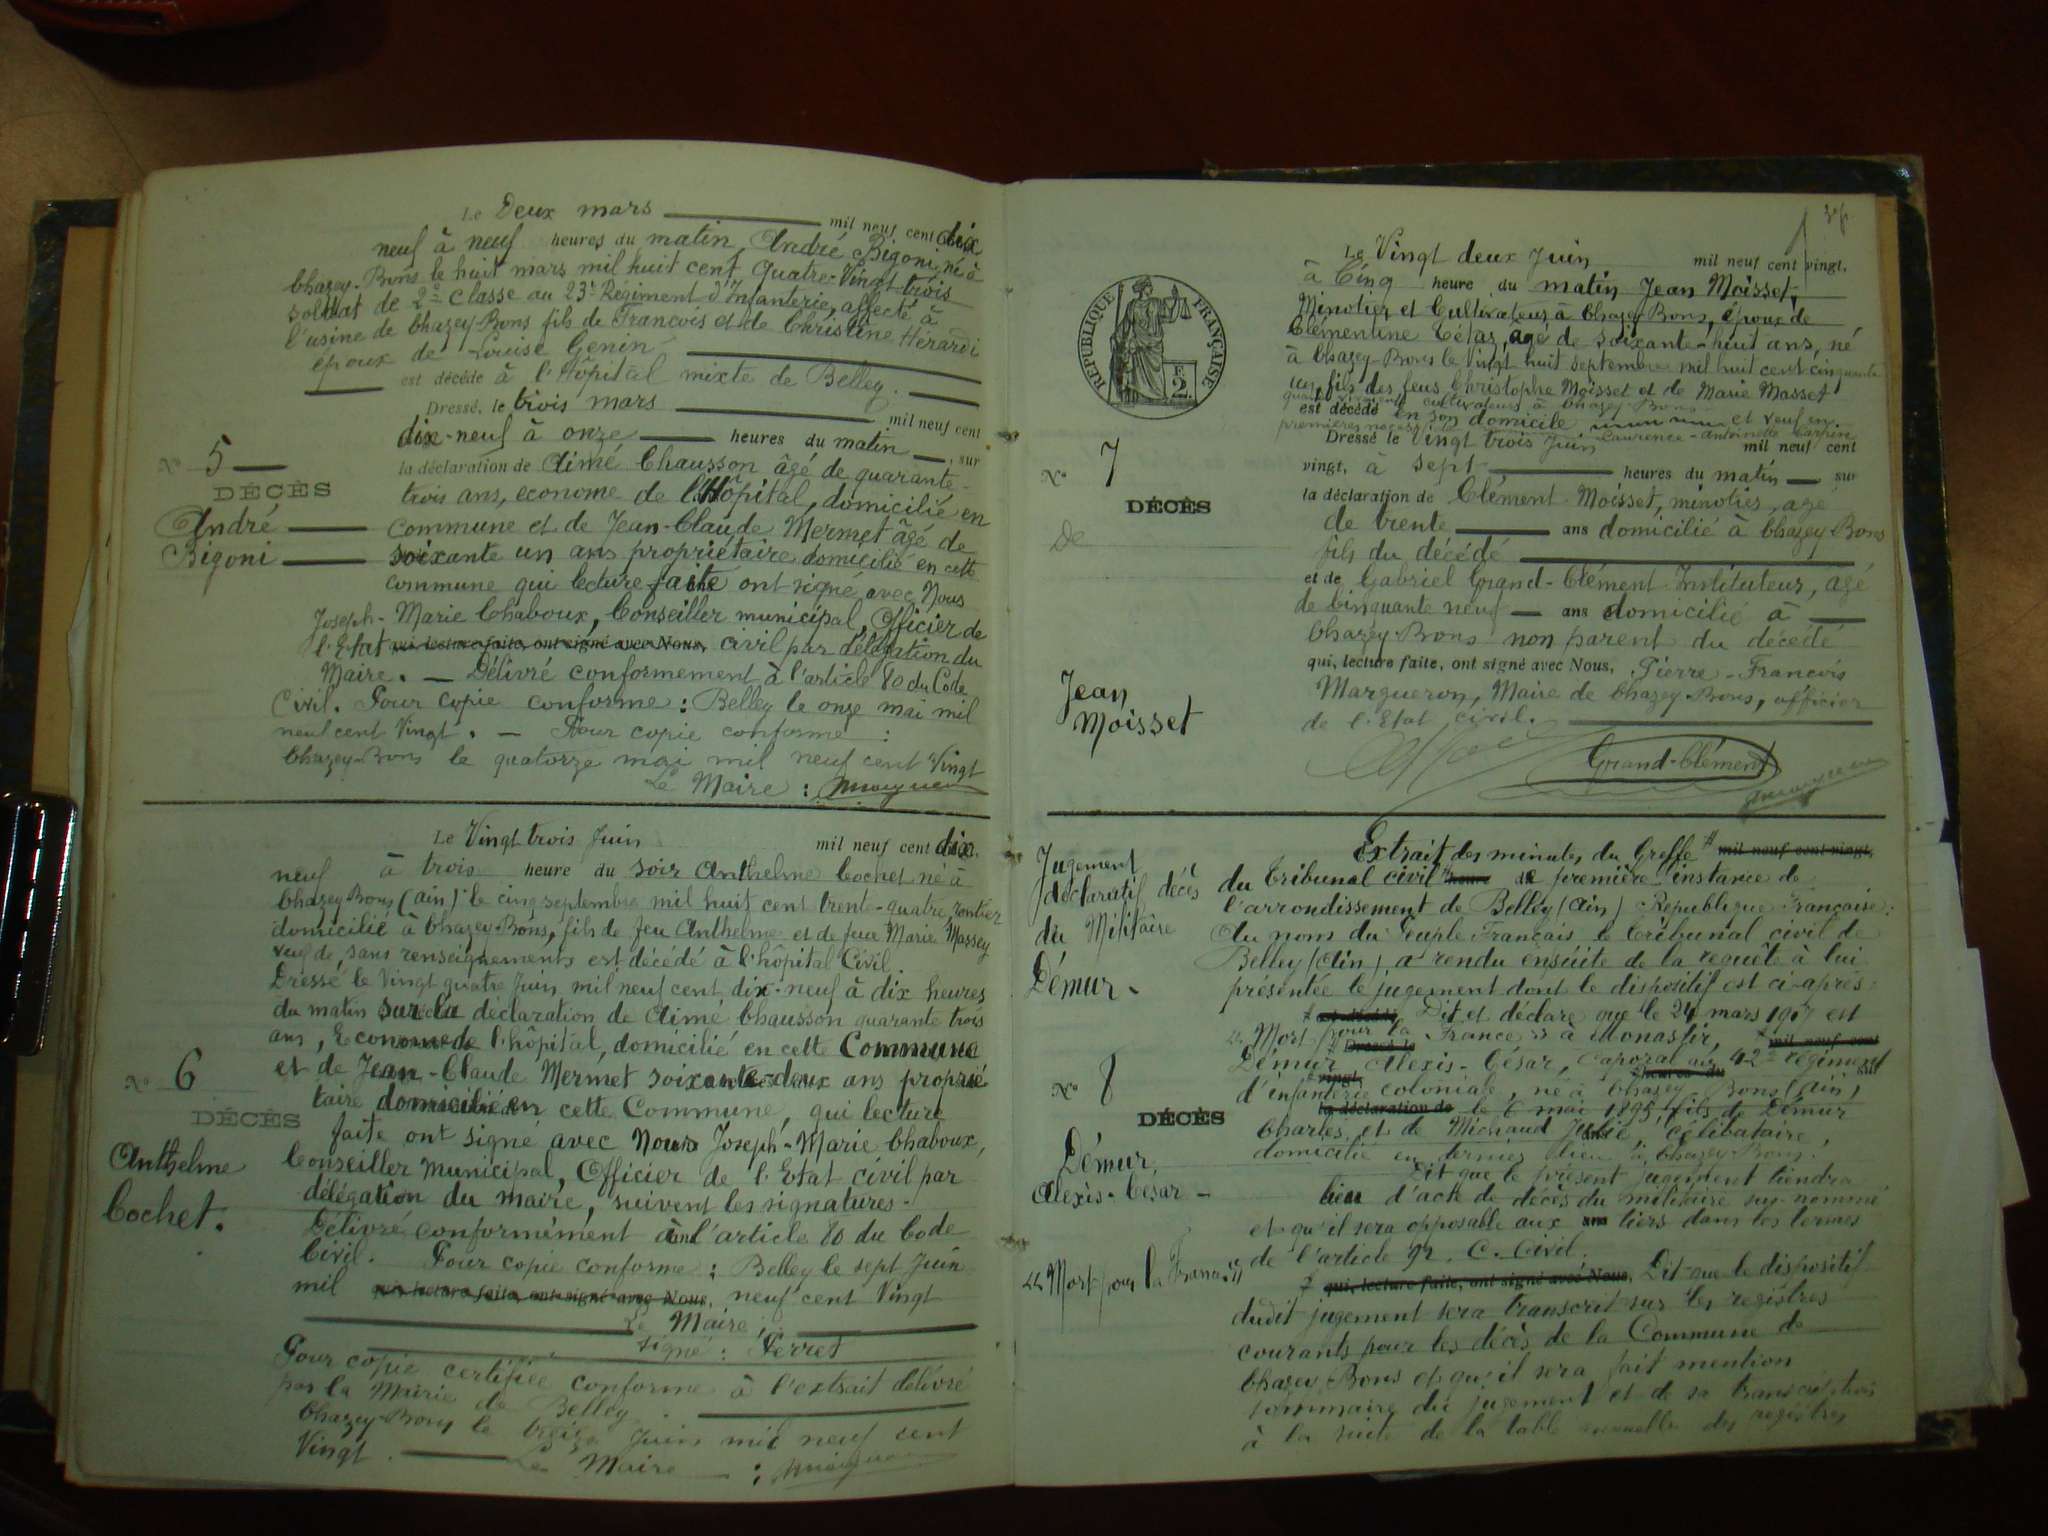 Le Deux mars mil neuf cent dix
neuf à neuf heures du matin, André Bigoni, né à
Chazey-Bons le huit mars mil huit cent quatre-vingt trois
soldat de 2e classe au 23e Régiment d'Infanterie, affecté à
l'usine de Chazey-Bons fils de Francois et de Christine Hérardi
époux de Louise Genin
est décédé à l'Hôpital mixte de Belley.
Dressé, le trois mars mil neuf cent
dix-neuf à onze heures du matin, sur
la déclaration de Aimé Chausson âgé de quarante-
trois ans, econome de l'Hôpital, domicilié en
commune et de Jean-Claude Mermet âgé de
soixante un ans propriétaire domicilié en cette
commune qui lecture faite ont signé avec Nous
Joseph-Marie Chaboux, Conseiller municipal, Officier de
l'Etat qui, lecture faite, ont signé avec Nous, civil par délégation du
Maire. — Délivré conformement à l'article 80 du Code
Civil. Pour copie conforme : Belley le onze mai mil
neuf cent Vingt. — Pour copie conforme :
Chazey-Bons le quatorze mai mil neuf cent Vingt
Le Maire :
No 5
DÉCÈS
André
Bigoni
Le Vingt trois Juin mil neuf cent dix
neuf à trois heure du soir Anthelme Cochet né à
Chazey Bons (Ain) le cinq septembre mil huit cent trente-quatre, rentier
domicilié à Chazey-Bons, fils de feu Anthelme et de feue Marie Massey
veuf de, sans renseignements est décédé à l'hôpital Civil.
Dressé le Vingt quatre Juin mil neuf cent dix-neuf à dix heures
du matin sur la déclaration de Aimé Chausson quarante trois
ans, Econome de l'hôpital, domicilié en cette Commune
et de Jean-Claude Mermet soixante-deux ans proprié
taire domicilié en cette Commune, qui lecture
faite ont signé avec Nous Joseph-Marie Chaboux,
Conseiller Municipal, Officier de l'Etat civil par
délégation du maire, suivent les signatures.
Délivré conformément à l'article 80 du Code
Civil. Pour copie conforme : Belley le sept Juin
mil qui, lecture faite, ont signé avec Nous, neuf cent Vingt
Le Maire :
signé : Perret
Pour copie certifiée conforme à l'extrait délivré
par la Mairie de Belley.
Chazey-Bons le treize Juin mil neuf cent
Vingt. Le Maire :
No 6
DÉCÈS
Anthelme
Cochet.
RÉPUBLIQUE FRANÇAISE
F.
2.
Le Vingt deux Juin mil neuf cent vingt,
à Cinq heure du matin Jean Moisset,
Minotier et Cultivateur à Chazey Bons, époux de
Clémentine Tétaz, agé de soixante-huit ans, né
à Chazey-Bons le Vingt huit septembre mil huit cent cinquante
un, fils des feus Christophe Moisset et de Marie Masset
quand vivants cultivateurs à Chazey Bons
est décédé en son domicile et veuf en
premières noces de Laurence-Antoinette Carpin
Dressé le Vingt trois Juin mil neuf cent
vingt, à sept heures du matin sur
la déclaration de Clément Moisset, minotier, agé
de trente ans domicilié à Chazey-Bons
fils du décédé
et de Gabriel Grand-Clément Instituteur, agé
de Cinquante neuf ans domicilié à
Chazey-Bons non parent du décédé
qui, lecture faite, ont signé avec Nous, Pierre-Francois
Margueron, Maire de Chazey-Bons, officier
de l'Etat civil.
Grand-Clément
No 7
DÉCÈS
De
Jean
Moisset
Jugement
déclaratif décès
du Militaire
Démur
Extrait des minutes du Greffe mil neuf cent vingt,
du Tribunal civil heure de première instance de
l'arrondissement de Belley (Ain) République Française :
Au nom du Peuple Français le Tribunal civil de
Belley (Ain) a rendu ensuite de la requête à lui
présentée le jugement dont le dispositif est ci-après :
est décédé Dit et déclare que le 24 mars 1917 est
"Mort pour la France" à Monastir,
Dressé le mil neuf cent
Démur Alexis-César, Caporal au 42e régiment
vingt, heures du
d'infanterie coloniale, né à Chazey Bons (Ain)
la déclaration de le 6 mai 1895 fils de Démur
Charles et de Michaud Julie, célibataire,
domicilié en dernier lieu à Chazey-Bons.
Dit que le présent jugement tiendra
lieu d'acte de décès du militaire sus-nommé
et qu'il sera opposable aux ans tiers dans les termes
de l'article 92. C. Civil.
qui, lecture faite, ont signé avec Nous, Dit que le dispositif
dudit jugement sera transcrit sur les registres
courants pour les décès de la Commune de
Chazey Bons et qu'il sera fait mention
sommaire du jugement et de sa transcription
à la suite de la table annuelle des registres
No 8
DÉCÈS
Démur,
Alexis-César
"Mort pour la France"